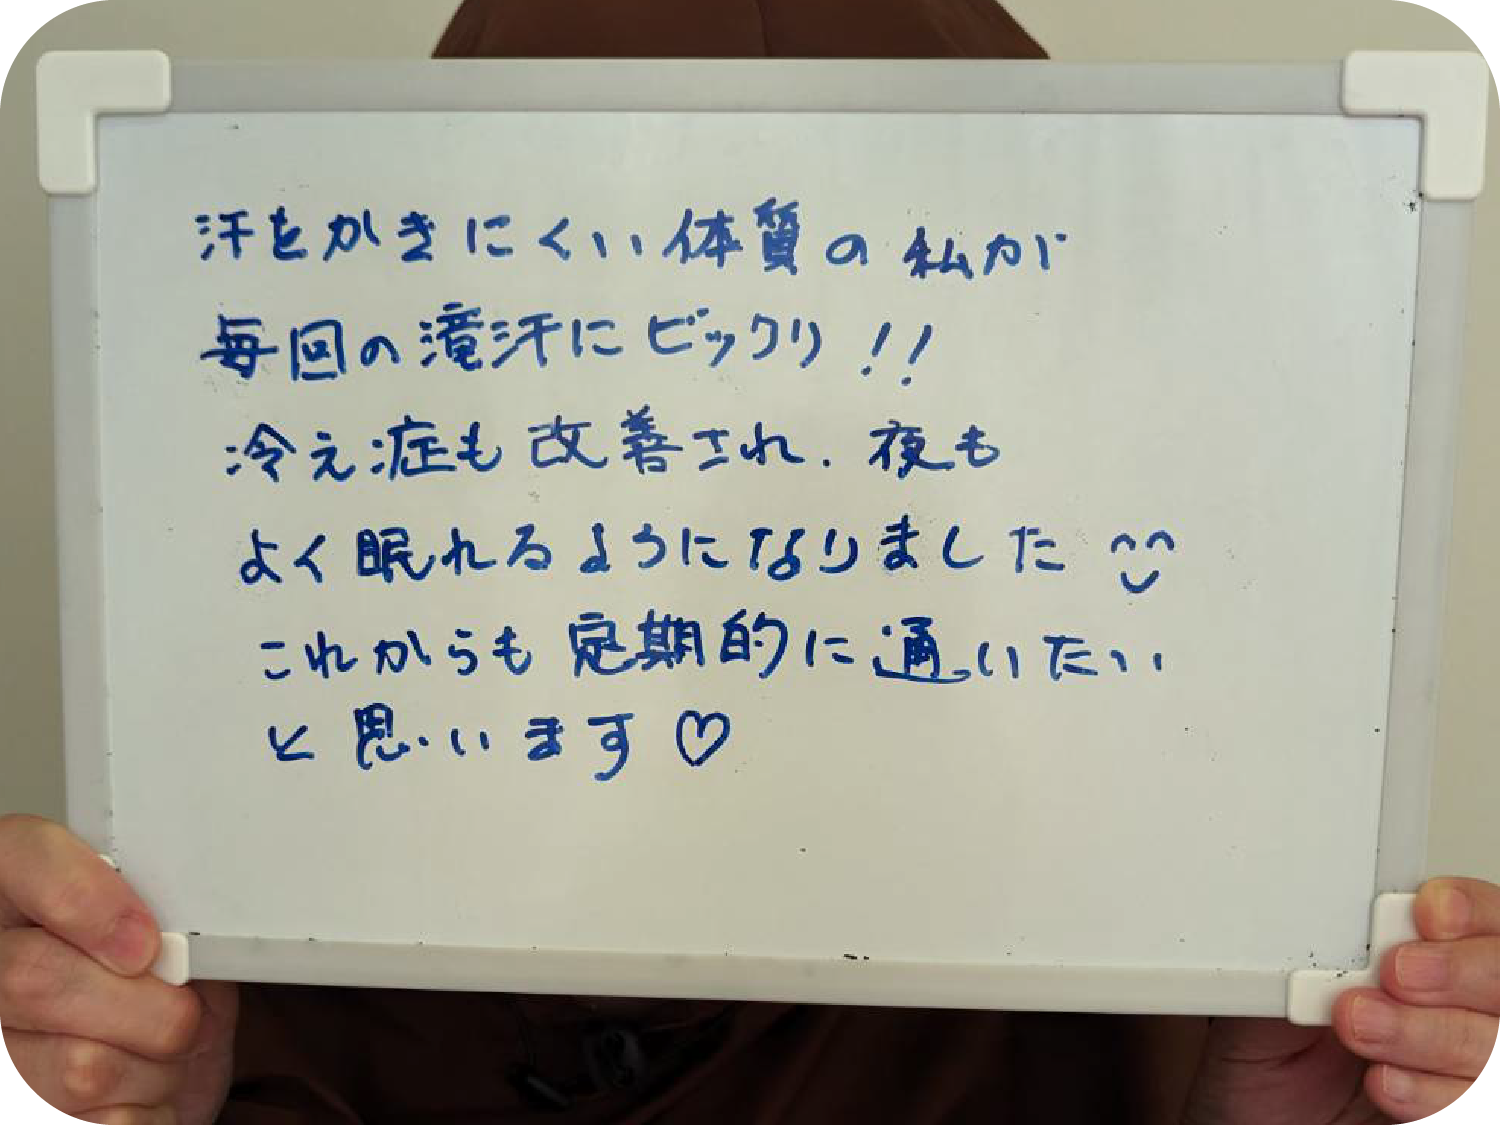 汗をかきにくい体質の私が
毎回の滝汗にビックリ!!
冷え症も改善され、夜も
よく眠れるようになりました ^^
これからも定期的に通いたい
と思います♡